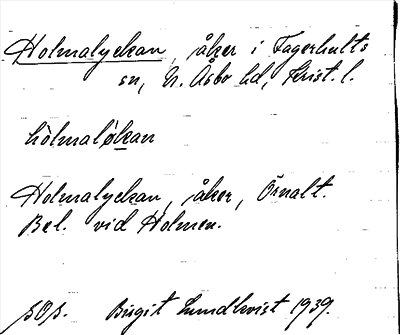 Holmalyckan, åker i Fagerhults
sn, N. Åsbo hd, Krist. l.
hòlmaløkan
Holmalyckan, åker, Örnalt.
Bel. vid Holmen.
sOs. Birgit Lundkvist 1939.